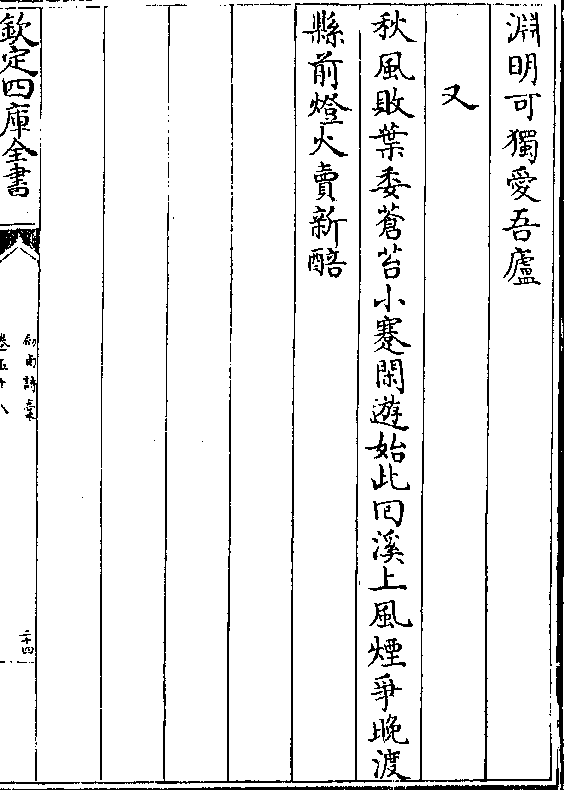 淵明可獨愛吾廬
又
秋風敗葉委蒼苔小蹇閑遊始此回溪上風煙爭晚渡
縣前燈火賣新醅
欽定四庫全書
劍南詩稾
卷五十八
二十四